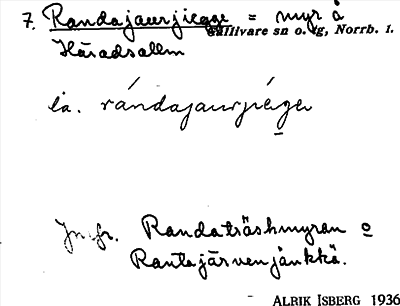 7. Randajaurjiegge = myr å
Gällivare sn o. tg, Norrb. l.
Häradsallm
la. rándajaurjiégge
Jmfr. Randaträskmyran o
Rantajärvenjänkkä.
- ALRIK ISBERG 1936